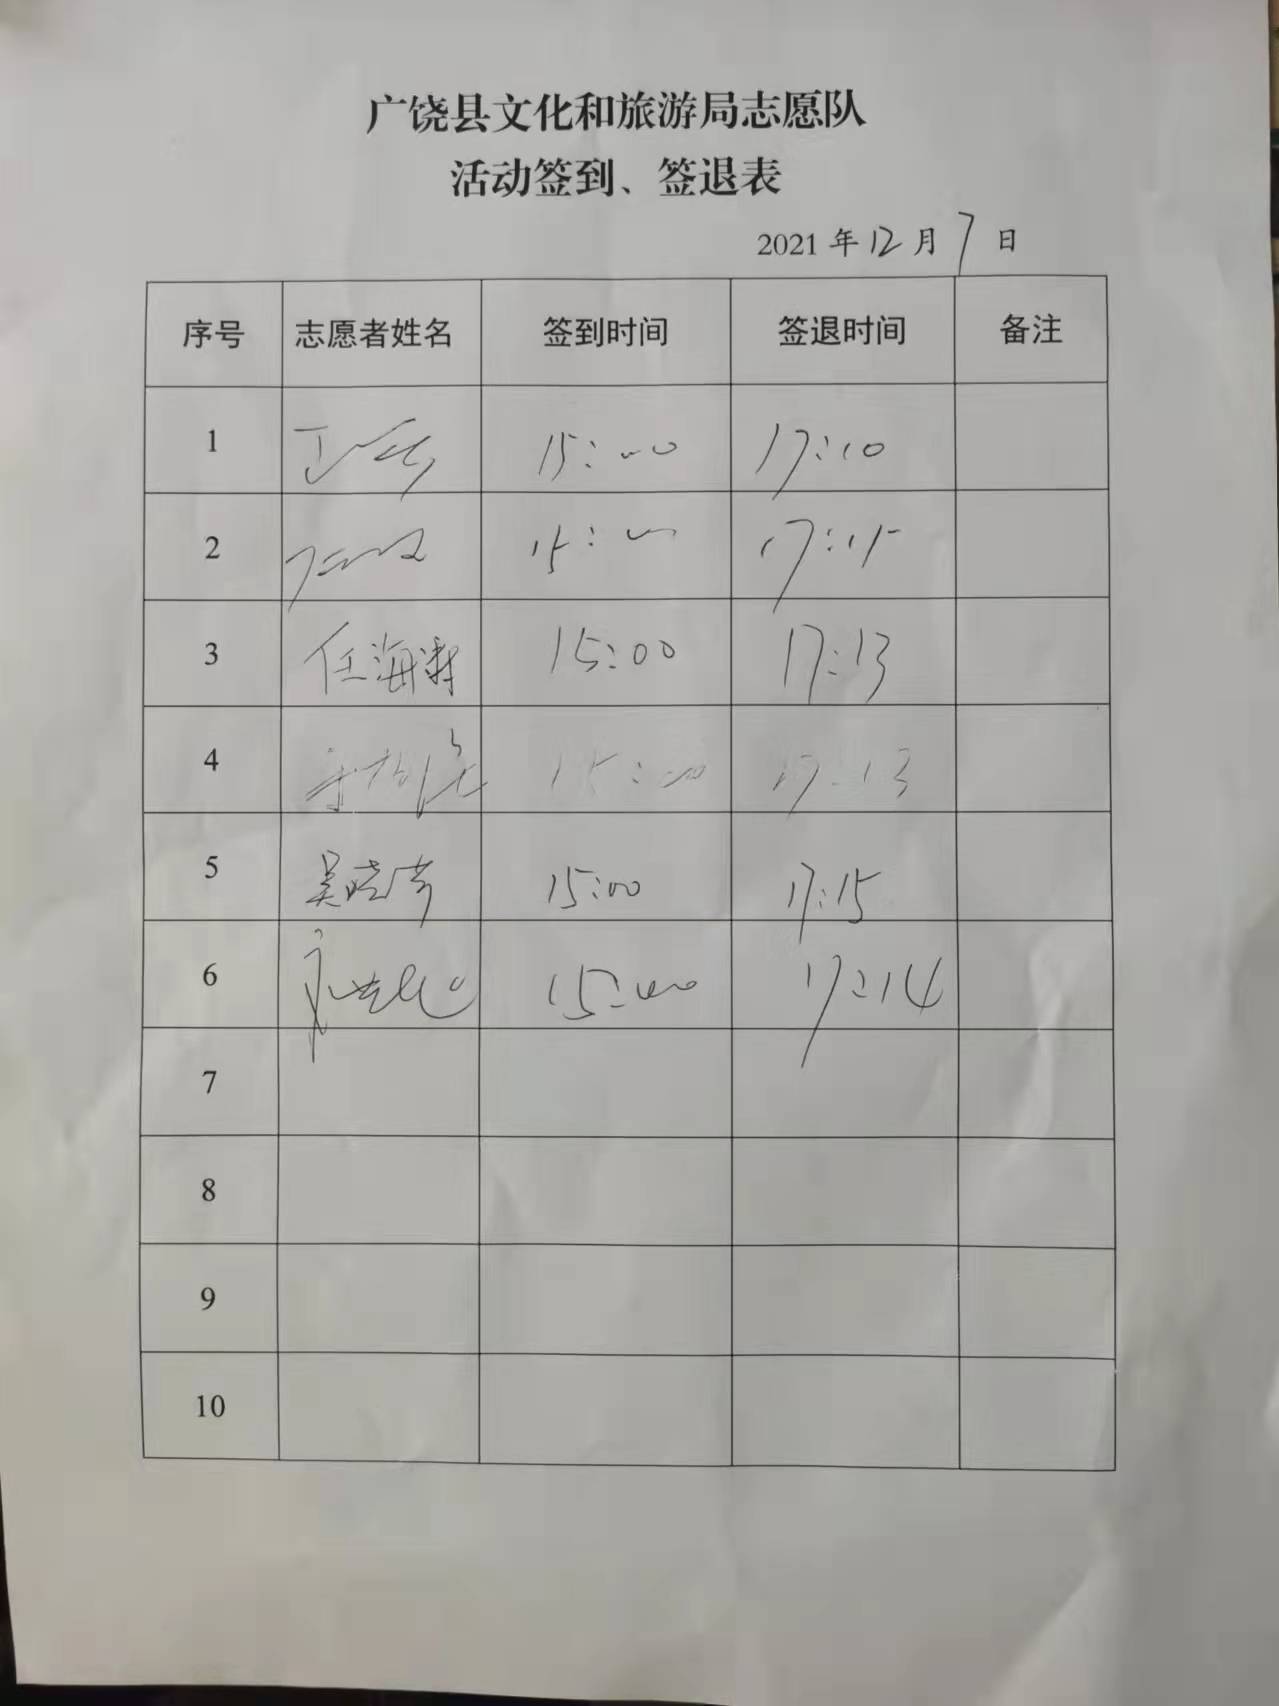 广饶县文化和旅游局志愿队
活动签到、签退表
2021年12月7日
序号 志愿者姓名 签到时间 签退时间 备注
1 15:00 17:10
2 15:00 17:15
3 任海涛 15:00 17:13
4 15:00 17:13
5 吴晓 15:00 17:15
6 15:00 17:14
7
8
9
10